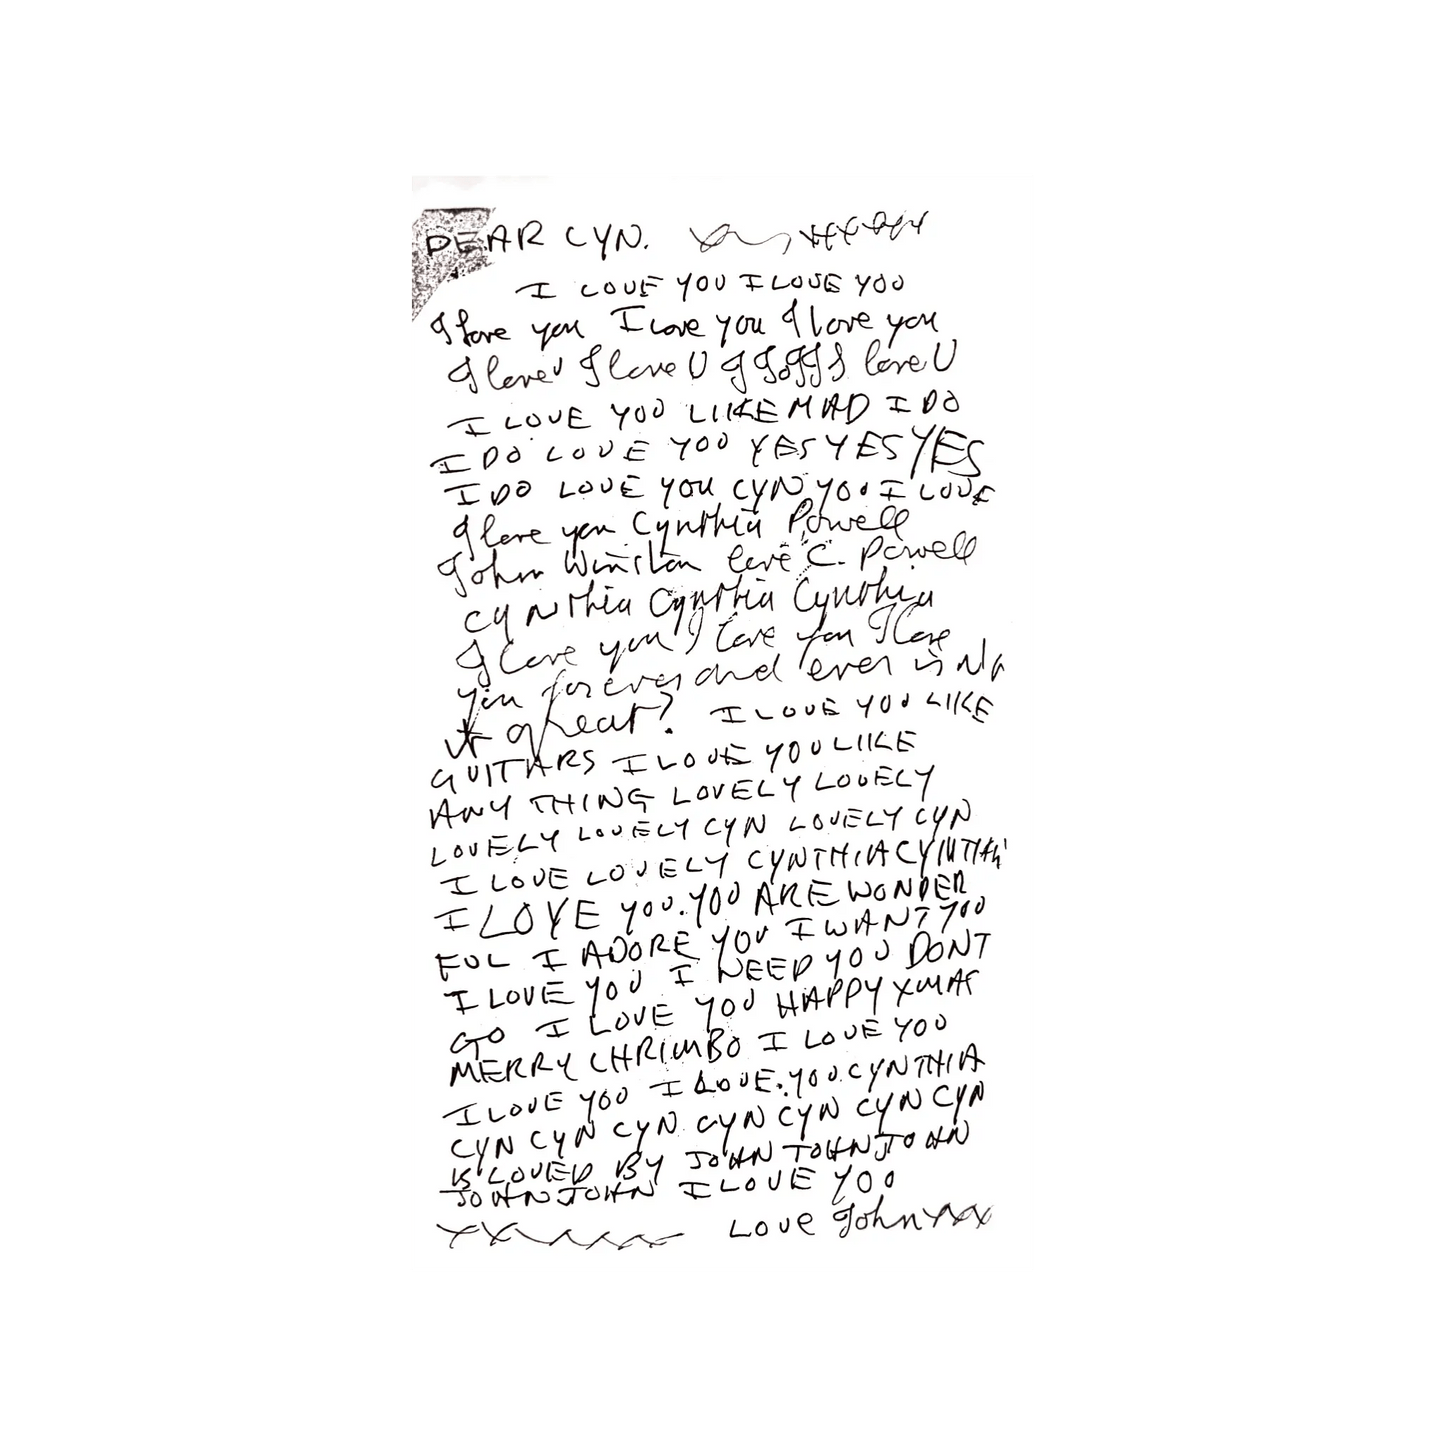 DEAR CYN.
I LOVE YOU I LOVE YOU
I love you I love you I love you
I love U I love U I I I I I I love U
I LOVE YOU LIKE MAD I DO
I DO LOVE YOU YES YES YES
I DO LOVE YOU CYN YOU I LOVE
I love you Cynthia Powell
John Winston love C. Powell
Cynthia Cynthia Cynthia
I love you I love you I love
you forever and ever isn't
it great? I LOVE YOU LIKE
GUITARS I LOVE YOU LIKE
ANY THING LOVELY LOVELY
LOVELY LOVELY CYN LOVELY CYN
I LOVE LOVELY CYNTHIA CYNTHIA
I LOVE YOU. YOU ARE WONDER
FUL I ADORE YOU I WANT YOU
I LOVE YOU I NEED YOU DONT
GO I LOVE YOU HAPPY XMAS
MERRY CHRIMBO I LOVE YOU
I LOVE YOU I LOVE. YOU. CYNTHIA
CYN CYN CYN CYN CYN CYN CYN
IS LOVED BY JOHN JOHN JOHN
JOHN JOHN I LOVE YOU
XX Love John XXX